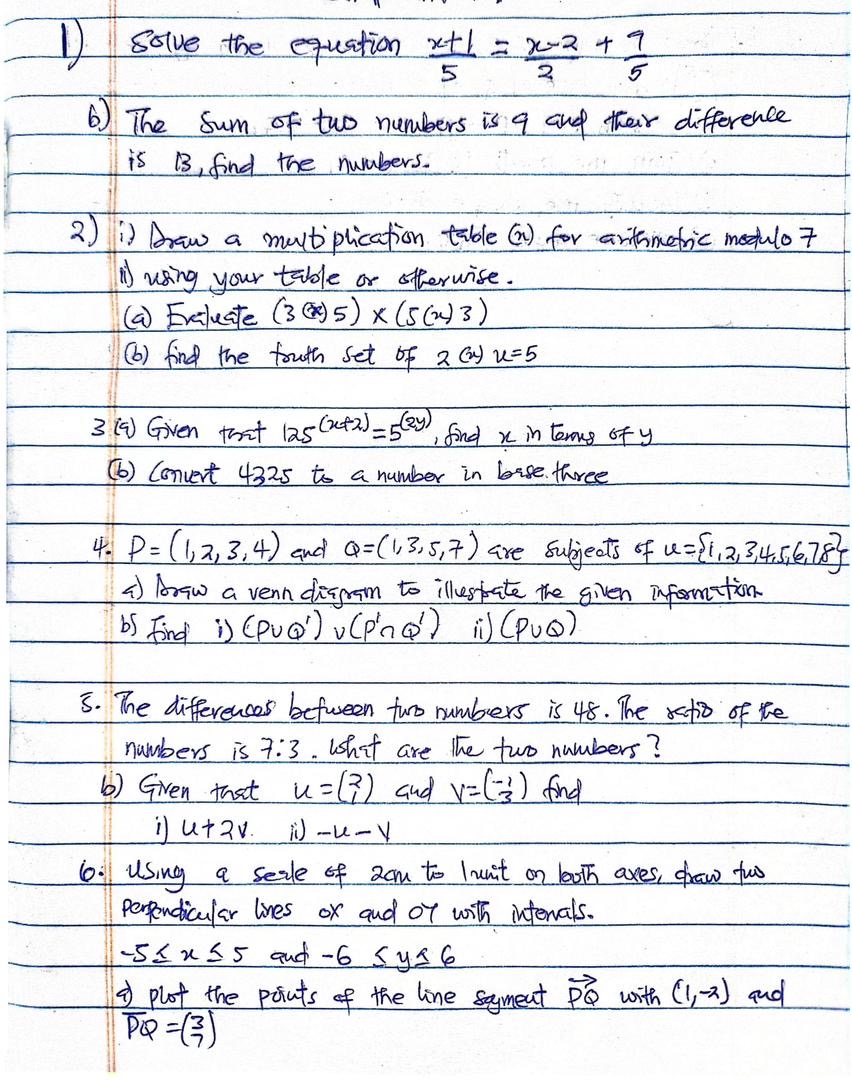 1) Solve the equation x+1/5 = x-2/2 + 9/5
b) The Sum of two numbers is 9 and their difference
is 13, find the numbers.
2) i) Draw a multiplication table (x) for arithmetric modulo 7
ii) using your table or otherwise.
(a) Evaluate (3 (x) 5) x (5 (x) 3)
(b) find the truth set of 2 (x) n=5
3 (a) Given that 125^(x+2) = 5^(2y), find x in terms of y
(b) Convert 4325 to a number in base three
4. P = (1,2,3,4) and Q=(1,3,5,7) are subjects of u={1,2,3,4,5,6,7,8}
a) Draw a venn diagram to illustrate the given information
b) find i) (PUQ') u (P'n Q') ii) (PuQ)
5. The differences between two numbers is 48. The ratio of the
numbers is 7:3. What are the two numbers?
b) Given that u = (2/1) and v=(-1/3) find
i) u+2v. ii) -u-v
6. Using a scale of 2cm to 1unit on both axes, draw two
perpendicular lines ox and oy with intervals.
-5 ≤ x ≤ 5 and -6 ≤ y ≤ 6
a) plot the points of the line segment PQ with (1,-2) and
PQ = (3/7)